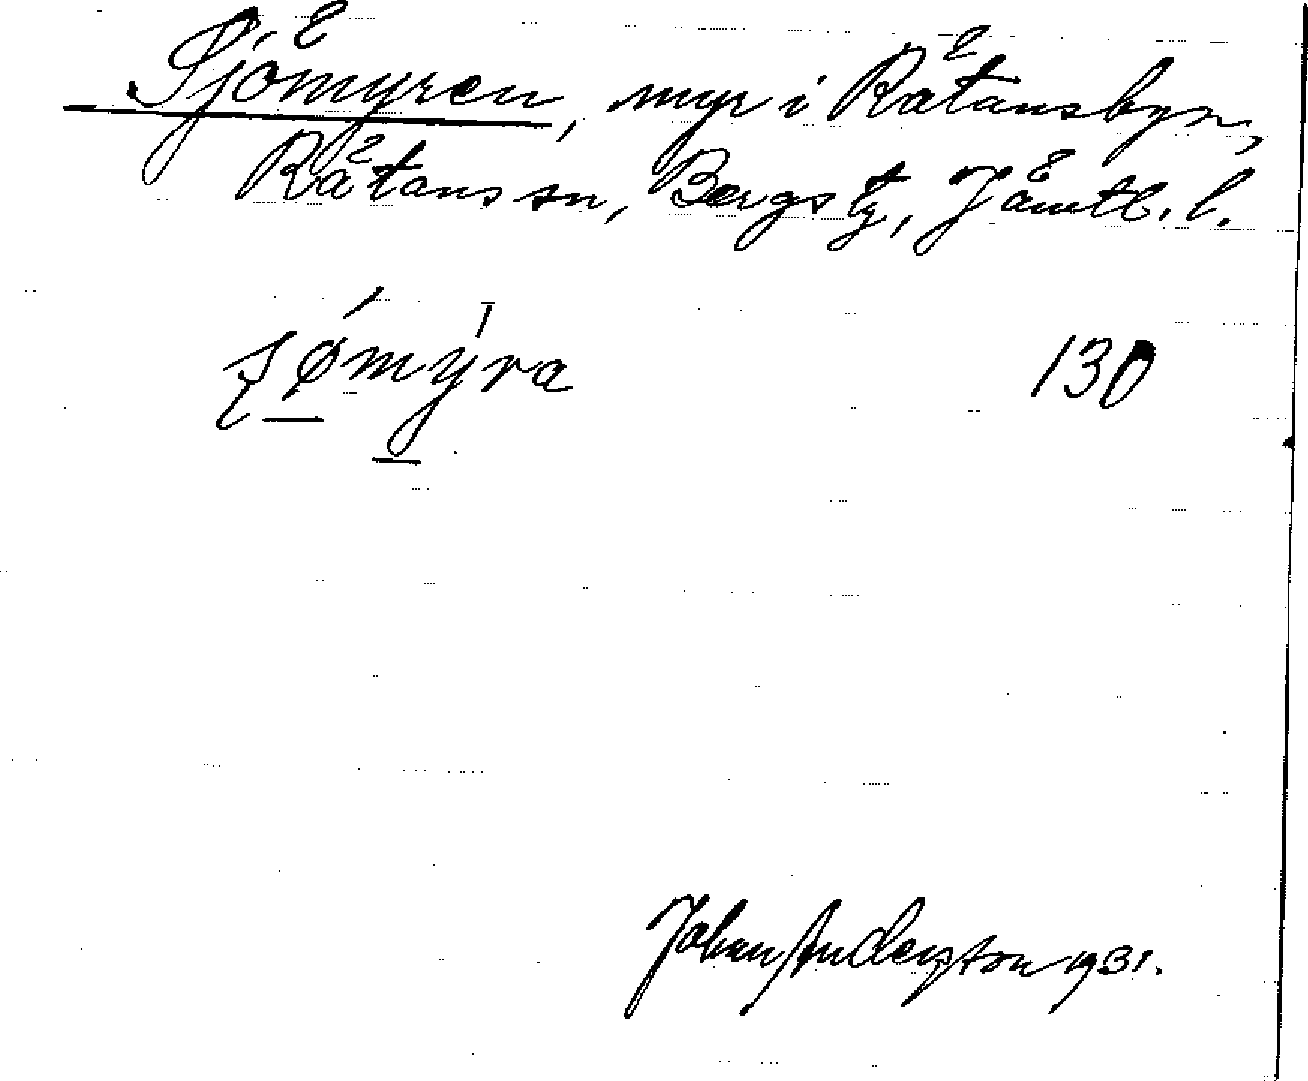 Sjömyren, myr i Rätansbyn,
Rätans sn, Bergs tg, Jämtl. l.
ʂǿmýra 130
Johan Anderzson 1931.